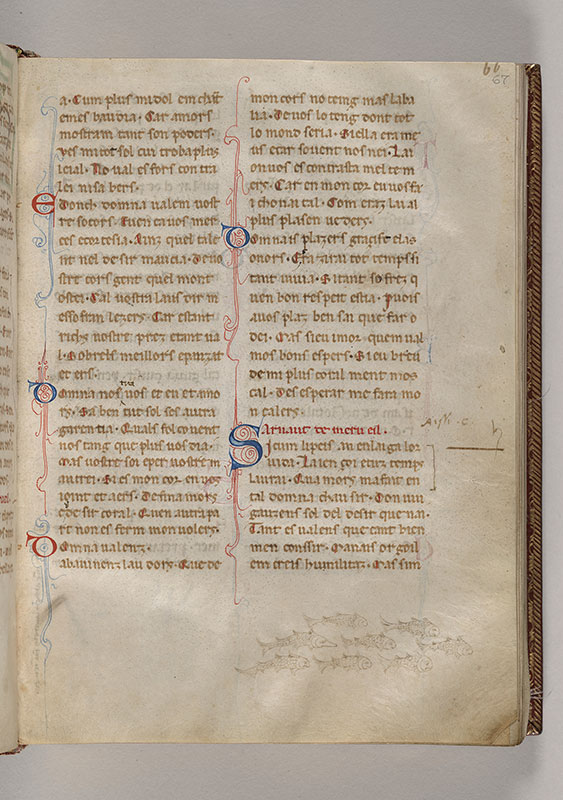 66
67
a. Cum plus midol em chāt
emes baudia. Car amors
mostram tant son poders.
ves mi tot sol cui troba pluz
leial. No val esfors con tra
lei nisabers.
E donch domna valem vost
re socors. E uenca uos mer
ces ecortesia. Anz quel tale
nt nel de sir maucia. De uo
stre cors gent quel mont
Cal vostra laus dir
Car estant
richs vostre prez etant va
l. Sobrels meillors epuizat
et ers.
D omna nos uos et en et amo
rs. Sa ben tut sol ses autra
garentia. Cauals fol couent
uos tang que plus uos dia.
Mas vostre soi eper vostre m
autrei. Et si mon cor en uoz
ioint et aers. De fina mors
de sir coral. Quen autra pa
rt non es ferm mon volers.
D omna valenz.
Que de
mon cors no teng mas laba
lia. De uos lo teng dont tot
lo mond seria. Si ella era me
us etar souent nos nei. Lai
on uos es contrasta mel te m
ers. Car en mon cor eu uos fa
i chonai tal. Com eraz lai al
plus plasen ue ders.
D omna is plazers graçisc elas
onors. tot temps si
tant viuia. Et tant so frez q
uen bon respeit estia. Puois
auos plaz ben sai que far o
dei. Mas sieu mor. quem val
mos bons espers. Si eu br
de mi plus cotal ment mos
cal. Des esperar me fara mo
n calers.
arnaut de meru eil.
S i cum li peis an en laiga lor
viuda. Lai en ioi etuz temp
laurai. Qua mors ma fait en
tal domna chau sir. Don uiu
gauzens sol del desir que nai.
Tant es valens que cant bien
men conssir. Manais orgoil
em creis humilitaz. Mas sim